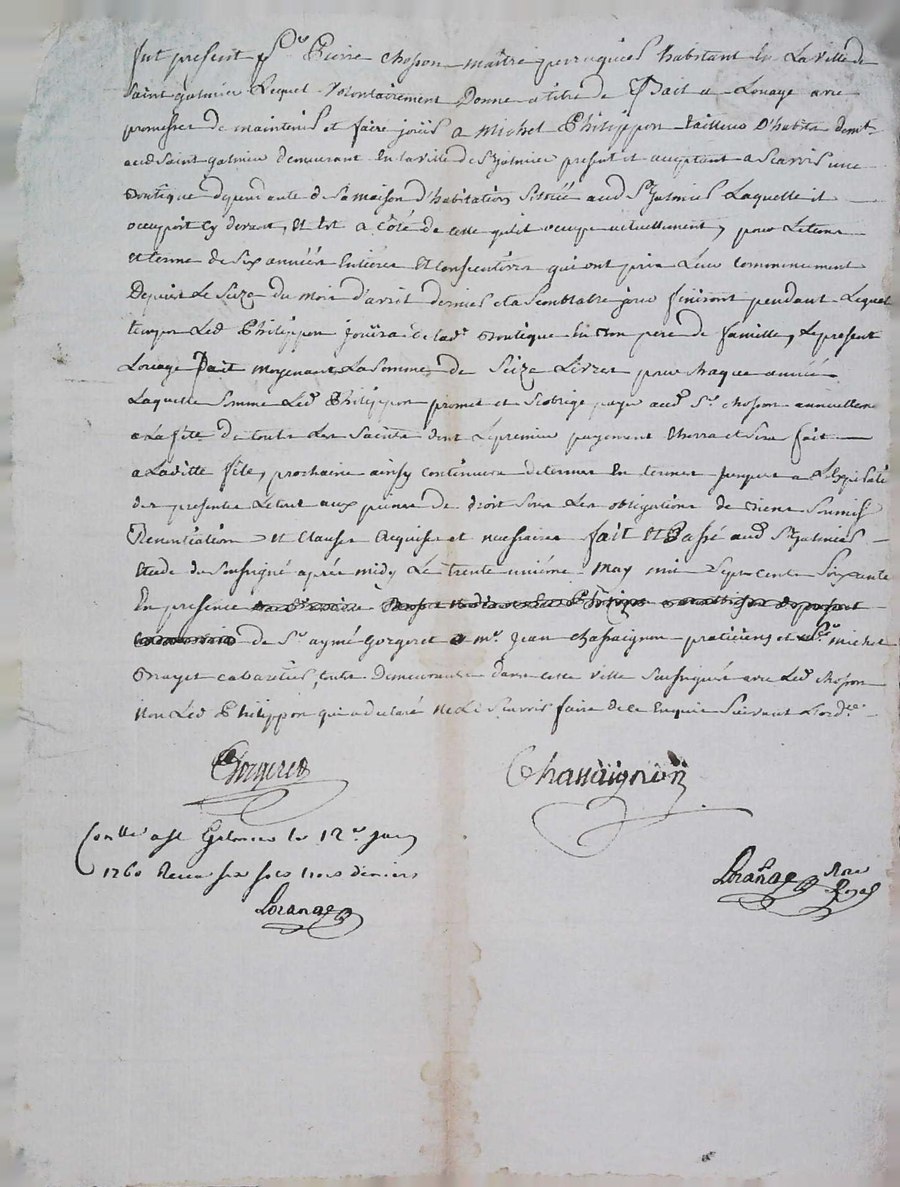 fut present Sr Pierre chosson maitre perruquier habitant en La ville de
Saint galmier Lequel volontairement Donne a titre de Bail a Louage avec
promesse de maintenir et faire jouir a Michel Philippon tailleur D'habits demt
aud Saint galmier demeurant En la ville de St galmier present et acceptant a Scavoir une
Boutique dependante de Sa maison d'habitation Scituée aud St galmier Laquelle il
occuppoit cy devant, Et Est a côté de celle qu'il occupe actuellement, pour Le tems
et terme de Six années Entieres Et Consecutives qui ont pris Leur Commencement
Depuis Le Seize du mois d'avril dernier et a Semblable jour finiront pendant Lequel
temps Led Philippon jouira de lad. Boutique En Bon pere de famille, Le present
Louage fait moyenant La Somme de Seize Livres pour chaque année
Laquelle Somme Led Philippon promet et S'oblige payer aud Sr chosson annuellemt
a La fête de touts Les Saints dont Le premier payement Eherra et Sera fait
a Laditte fête, prochaine ainsy continuera de termes En termes jusques a L'Expiration
des presentes Le tout aux peines de droit Sous Les obligations de Biens Soumis
Renontiation Et Clauses Requises et necessaires fait Et Passé aud St galmier
Etude du Soussigné après midy Le trente unieme May mil Sept Cents Soixante
En presence
de Sr aymé Gorgeret et me Jean Chassaignon praticiens et Michel
Brayet cabaretier, touts demeurants dans cette ville Soussignés avec Led chosson
Non Led Philippon qui a declaré ne Le Scavoir faire de ce Enquis Suivant L'ord.ce
Gorgeret
Chassaignon
Conllé a St Galmier le 12e juin
1760 Receu six sols trois deniers
Loranges
Loranges Nore
Royal